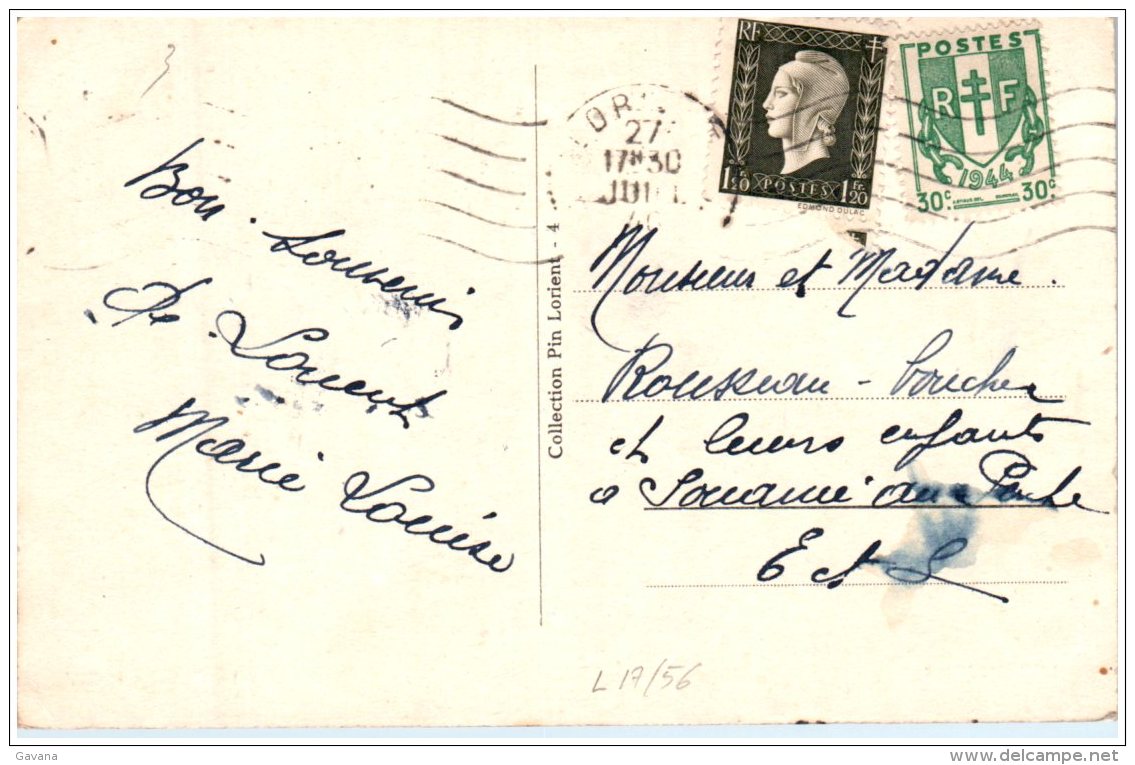 Bon Souvenir
De Lorient
Marie Louise
Collection Pin Lorient - 4
27
17H30
RF
1Fr.20 POSTES 1Fr.20
EDMOND DULAC
POSTES
R F
1944
30c 30c
Monsieur et Madame.
Rousseau - Boucher
et leurs enfants
à au
E et L
L 17/56
Gavana
www.delcampe.net